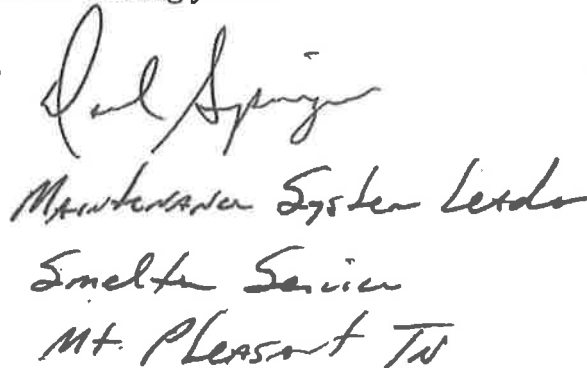 Maintenance System Leader
Smelter Service
Mt. Pleasant TN